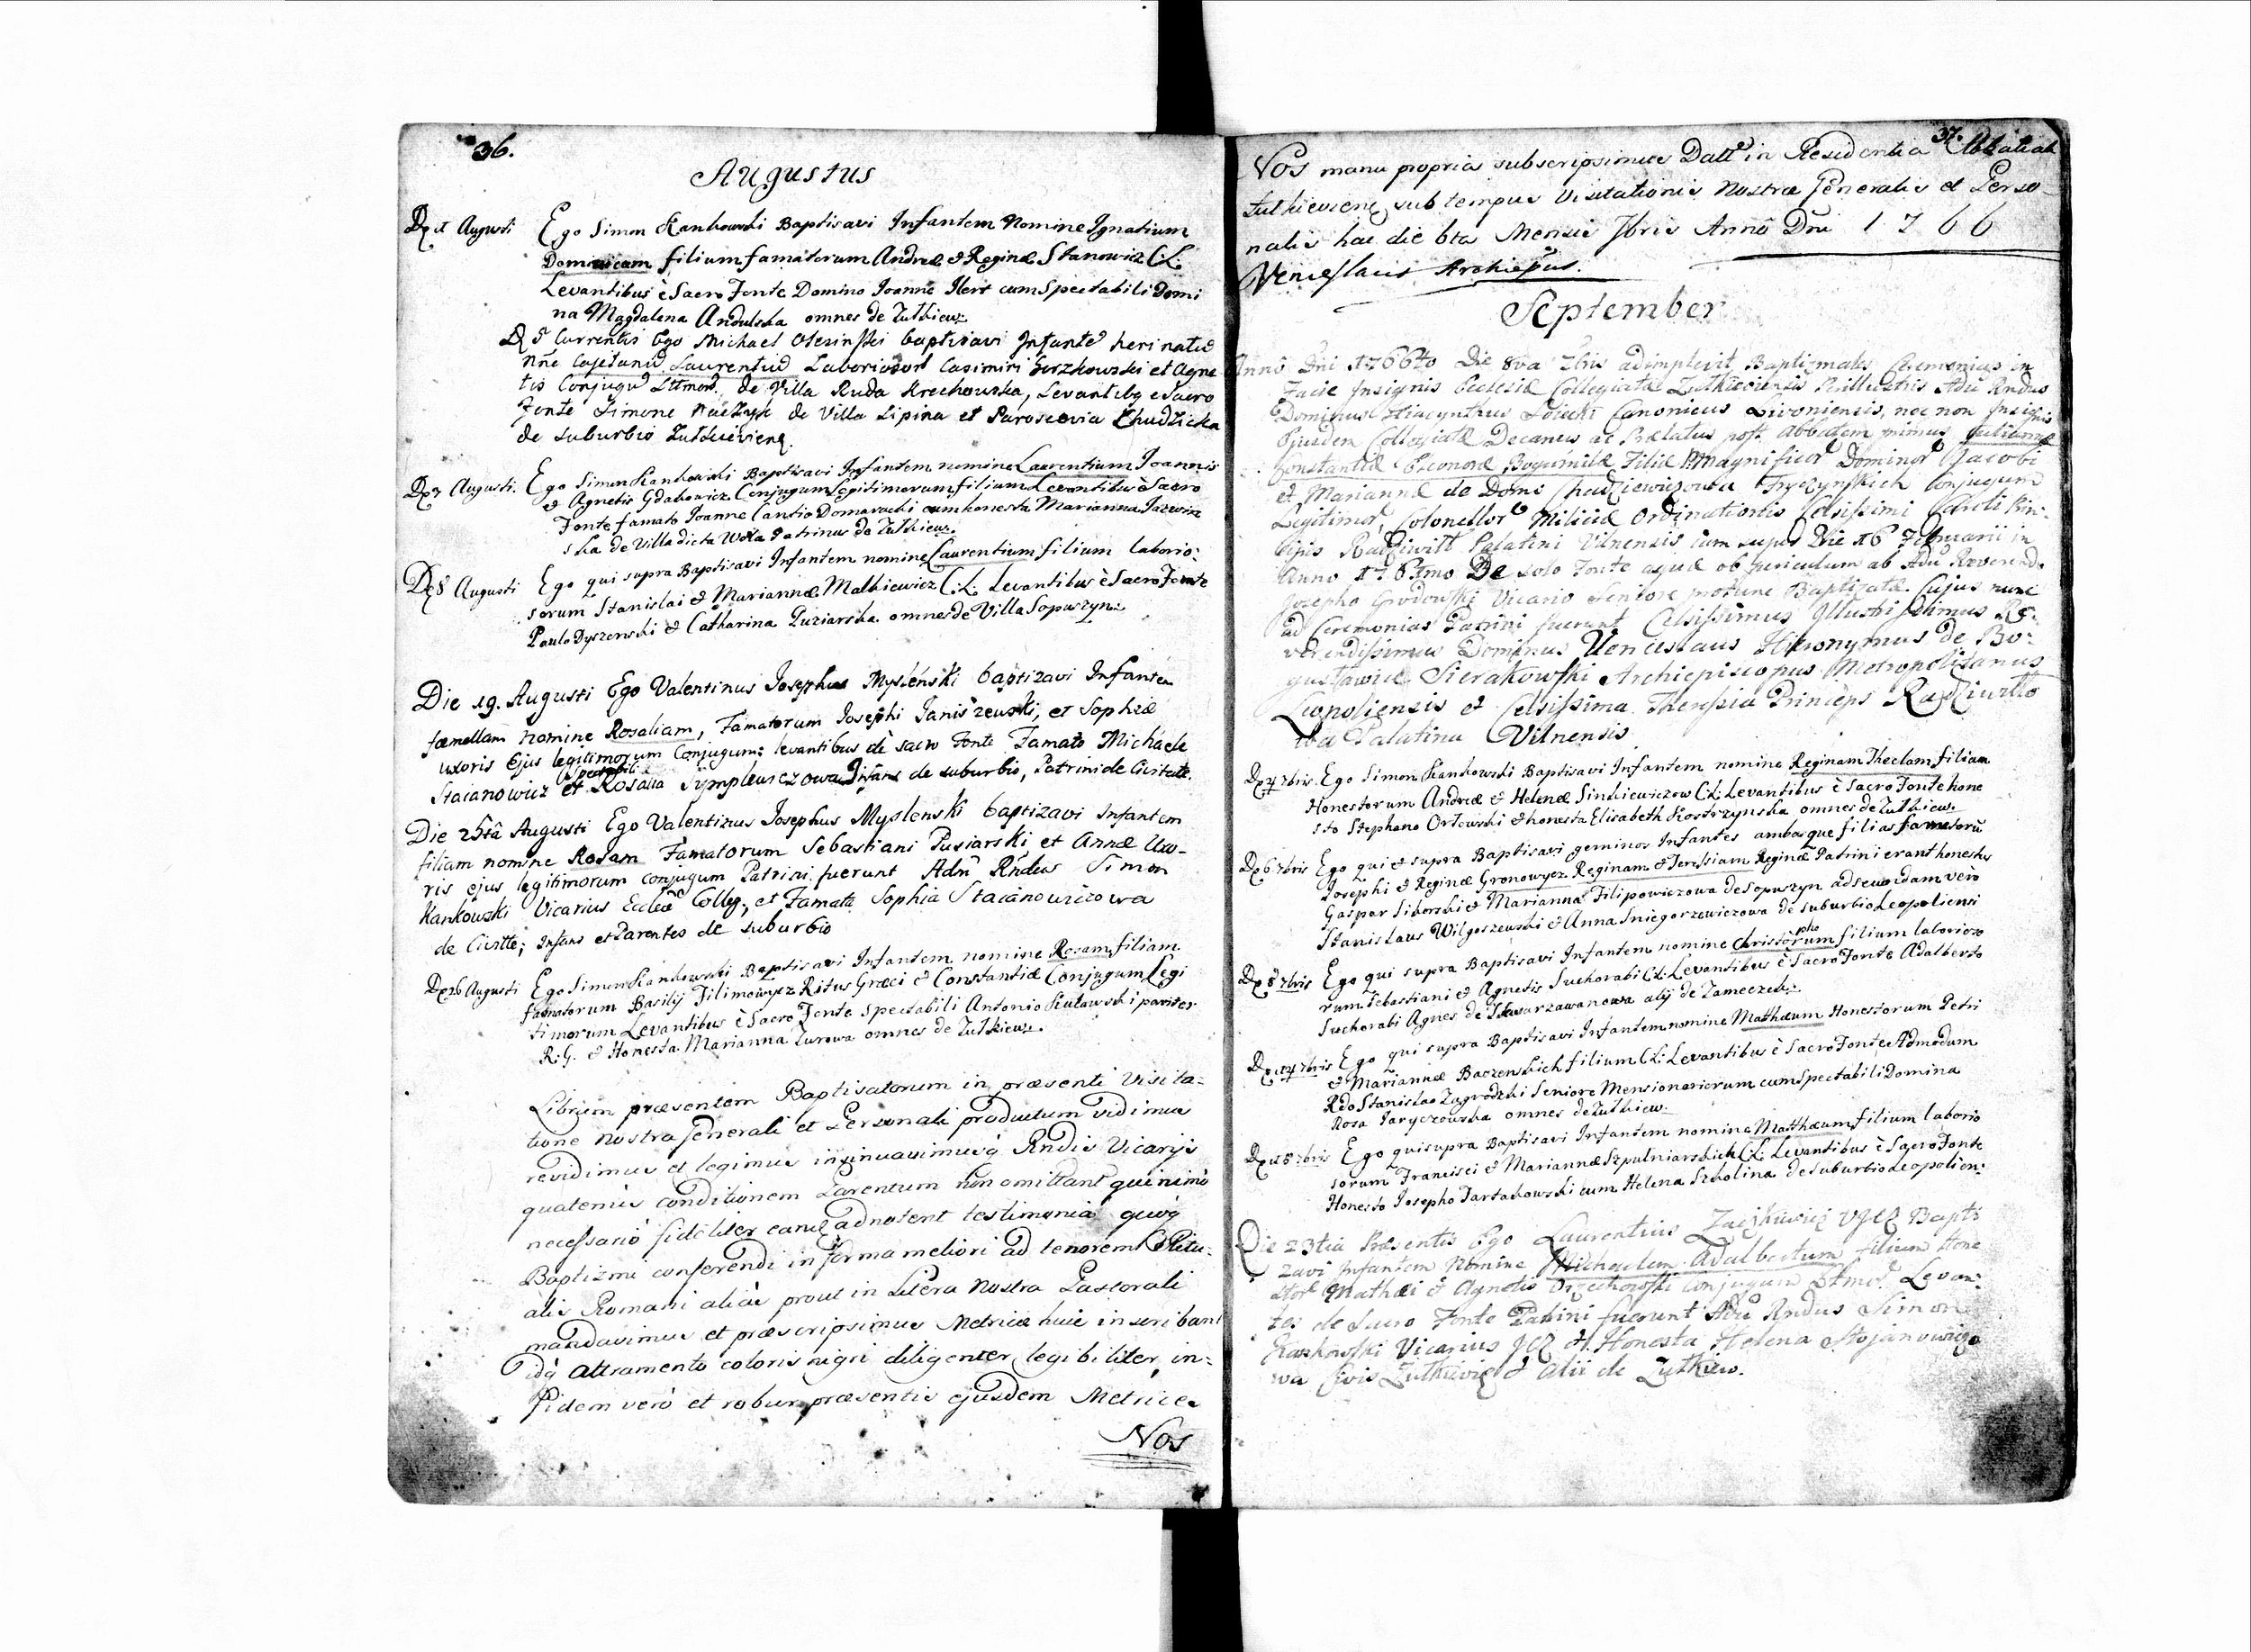 36.
Augustus
Die 1 Augusti Ego Simon Kankowski Baptisavi Infantem Nomine Ignatium
Dominicum filium famatorum Andreæ & Reginæ Stanowicz C:L:
Levantibus è Sacro Fonte Domino Joanne Ilert cum Spectabili Domi
na Magdalena Andulska omnes de Zulkiew:
D 5 Currentis Ego Michael Olesinski baptisavi Infante heri natu
nñe Cajetanu Laurentiu Laborioror Casimiri Gorzkowski et Agne
tis Conjugu Lttmor de Villa Ruda Krechowska, Levantibq e Sacro
Fonte Simone Kaczyk de Villa Lipina et Paroscovia Chudzicka
de suburbio Zulkieviens.
Die 7 Augusti. Ego Simon Kankowski Baptisavi Infantem nomine Laurentium Joannis
& Agnetis Gdakowicz Conjugum Legitimorum filium Levantibus è Sacro
Fonte famato Joanne Cantio Domaracki cum honesta Marianna Jazwin
ska de Villa dicta Wola Patrinus de Zulkiew:
Die 8 Augusti Ego qui supra Baptisavi Infantem nomine Laurentium filium laborio:
sorum Stanislai & Mariannæ Malkiewicz C:L: Levantibus è Sacro Fonte
Paulo Dyszewski & Catharina Puziarska omnes de Villa Sopuszyn:
Die 19. Augusti Ego Valentinus Josephus Myslenski baptizavi Infantem
fœmellam nomine Rosaliam, Famatorum Josephi Janiszewski, et Sophiæ
uxoris ejus legitimorum Conjugum: levantibus de sacro Fonte Famato Michaele
Spectabili
Staianowicz et Rosalia Symplewiczowa Infans de suburbio, Patrini de Civitate.
Die 25tâ Augusti Ego Valentinus Josephus Myslenski baptizavi Infantem
filiam nomine Rosam Famatorum Sebastiani Pusiarski, et Annæ Uxo-
ris ejus legitimorum conjugum Patrini fuerunt Adm Rndus Simon
Kankowski Vicarius Eccleæ Colleg:, et Famata Sophia Staianowiczowa
de Civitte; Infans et Parentes de suburbio
Die 26 Augusti Ego Simon Kankowski Baptisavi Infantem nomine Rosam filiam
famatorum Basilij Filimowycz Ritus Græci & Constantiæ Conjugum Legi
timorum Levantibus è Sacro Fonte Spectabili Antonio Kulawski pariter
R:G: & Honesta Marianna Zurowa omnes de Zulkiew:
Librum præsentem Baptisatorum in præsenti Visita=
tione nostra Generali et Personali productum vidimus
revidimus et legimus insinuavimusq Rndis Vicarijs
quatenus conditionem Parentum non omittant quinimo
necessario fideliter eamq adnotent testimonia quoq
Baptizmi conferendi in forma meliori ad tenorem Ritu=
alis Romani aliàs prout in Litera nostra Pastorali
mandavimus et præscripsimus Metricæ huic inscribant
idq Attramento coloris nigri diligenter legibiliter, in=
Fidem vero et robur præsentis ejusdem Metrices
Nos
37.
Nos manu propria subscripsimus Datt in Residentia Abbatiali
Zulkieviens sub tempus Visitationis Nostræ Generalis et Perso-
nalis hac die 6ta Mensis 7bris Anno Dni 1766
Venceslaus Archiepus.
September
Anno Dni 1766to Die 8va 7bris adimplevit Baptizmales Ceremonias in
Facie Insignis Ecclesiæ Collegiatæ Zulkieviensis Perillustris Adm Rndus
Dominus Hiacynthus Canonicus Livoniensis, nec non Insignis
Ejusdem Collegiatæ Decanus ac Prælatus post Abbatem primus Julianæ
Constantiæ Eleonoræ Bogumilæ Filiæ Magnificor Dominor Jacobi
et Mariannæ de Domo Chudziewiczowa Fryczynskich Conjugum
Legitimor, Colonellor Miliciæ Ordinationis Celsissimi Caroli Prin=
cipis Radziwill Palatini Vilnensis cum supra Die 16 Februarii in
Anno De solo Fonte aquæ ob periculum ab Adm Reverend
Josepho Grodowski Vicario Seniore protunc Baptizatæ. Cujus nunc
ad Ceremonias Patrini fuerunt Celsissimus Illustrissimus Re=
verendissimus Dominus Venceslaus Hieronymus de Bo=
gusławice Sierakowski Archiepiscopus Metropolitanus
Leopoliensis et Celsissima Theressia Princeps Radziwiłło
wa Palatina Vilnensis
Die 4 7bris Ego Simon Kankowski Baptisavi Infantem nomine Reginam Theclam filiam
Honestorum Andreæ & Helenæ Sinkiewiczow C:L: Levantibus è Sacro Fonte hone
sto Stephano Orłowski & honesta Elisabeth Kostrzynska omnes de Zulkiew:
Die 6 7bris Ego qui & supra Baptisavi geminos Infantes ambasque filias famatorū
Josephi & Reginæ Gronowycz Reginam & Teressiam Reginæ Patrini erant honestus
Gaspar Sikorski & Marianna Filipowiczowa de Sopuszyn ad secundam vero
Stanislaus Wilgoszewski & Anna Sniegorzewiczowa de suburbio Leopoliensi
Die 8 7bris Ego qui supra Baptisavi Infantem nomine Christophorum filium laborioso
rum Sebastiani & Agnetis Suchorabi C:L: Levantibus è Sacro Fonte Adalberto
Suchorabi Agnes de Skwarzawa nova alij de Zameczek:
Die 14 7bris Ego qui supra Baptisavi Infantem nomine Mathæum Honestorum Petri
& Mariannæ Baczenskich filium C:L: Levantibus è Sacro Fonte Admodum
Rdo Stanislao Zagrodzki Seniore Mensionariorum cum Spectabili Domina
Rosa Jaryczowska omnes de Zulkiew.
Die 18 7bris Ego qui supra Baptisavi Infantem nomine Matthæum filium laborio
sorum Francisci & Mariannæ Szpulniarskich C:L: Levantibus è Sacro Fonte
Honesto Josepho Tartakowski cum Helena Szkolina de suburbio Leopolien:
Die 23tia Præsentis Ego Laurentius Bapti
zavi Infantem Nomine Michaelem Adalbertum filium Hone
stor Mathæi & Agnetis Orzechowski Conjugum Lttmor Levan=
tes de Sacro Fonte Patrini fuerunt Adm Rndus Simon
Kankowski Vicarius & Honesta Helena Stojanowiczo
wa Civis Zulkievien & alii de Zulkiew.